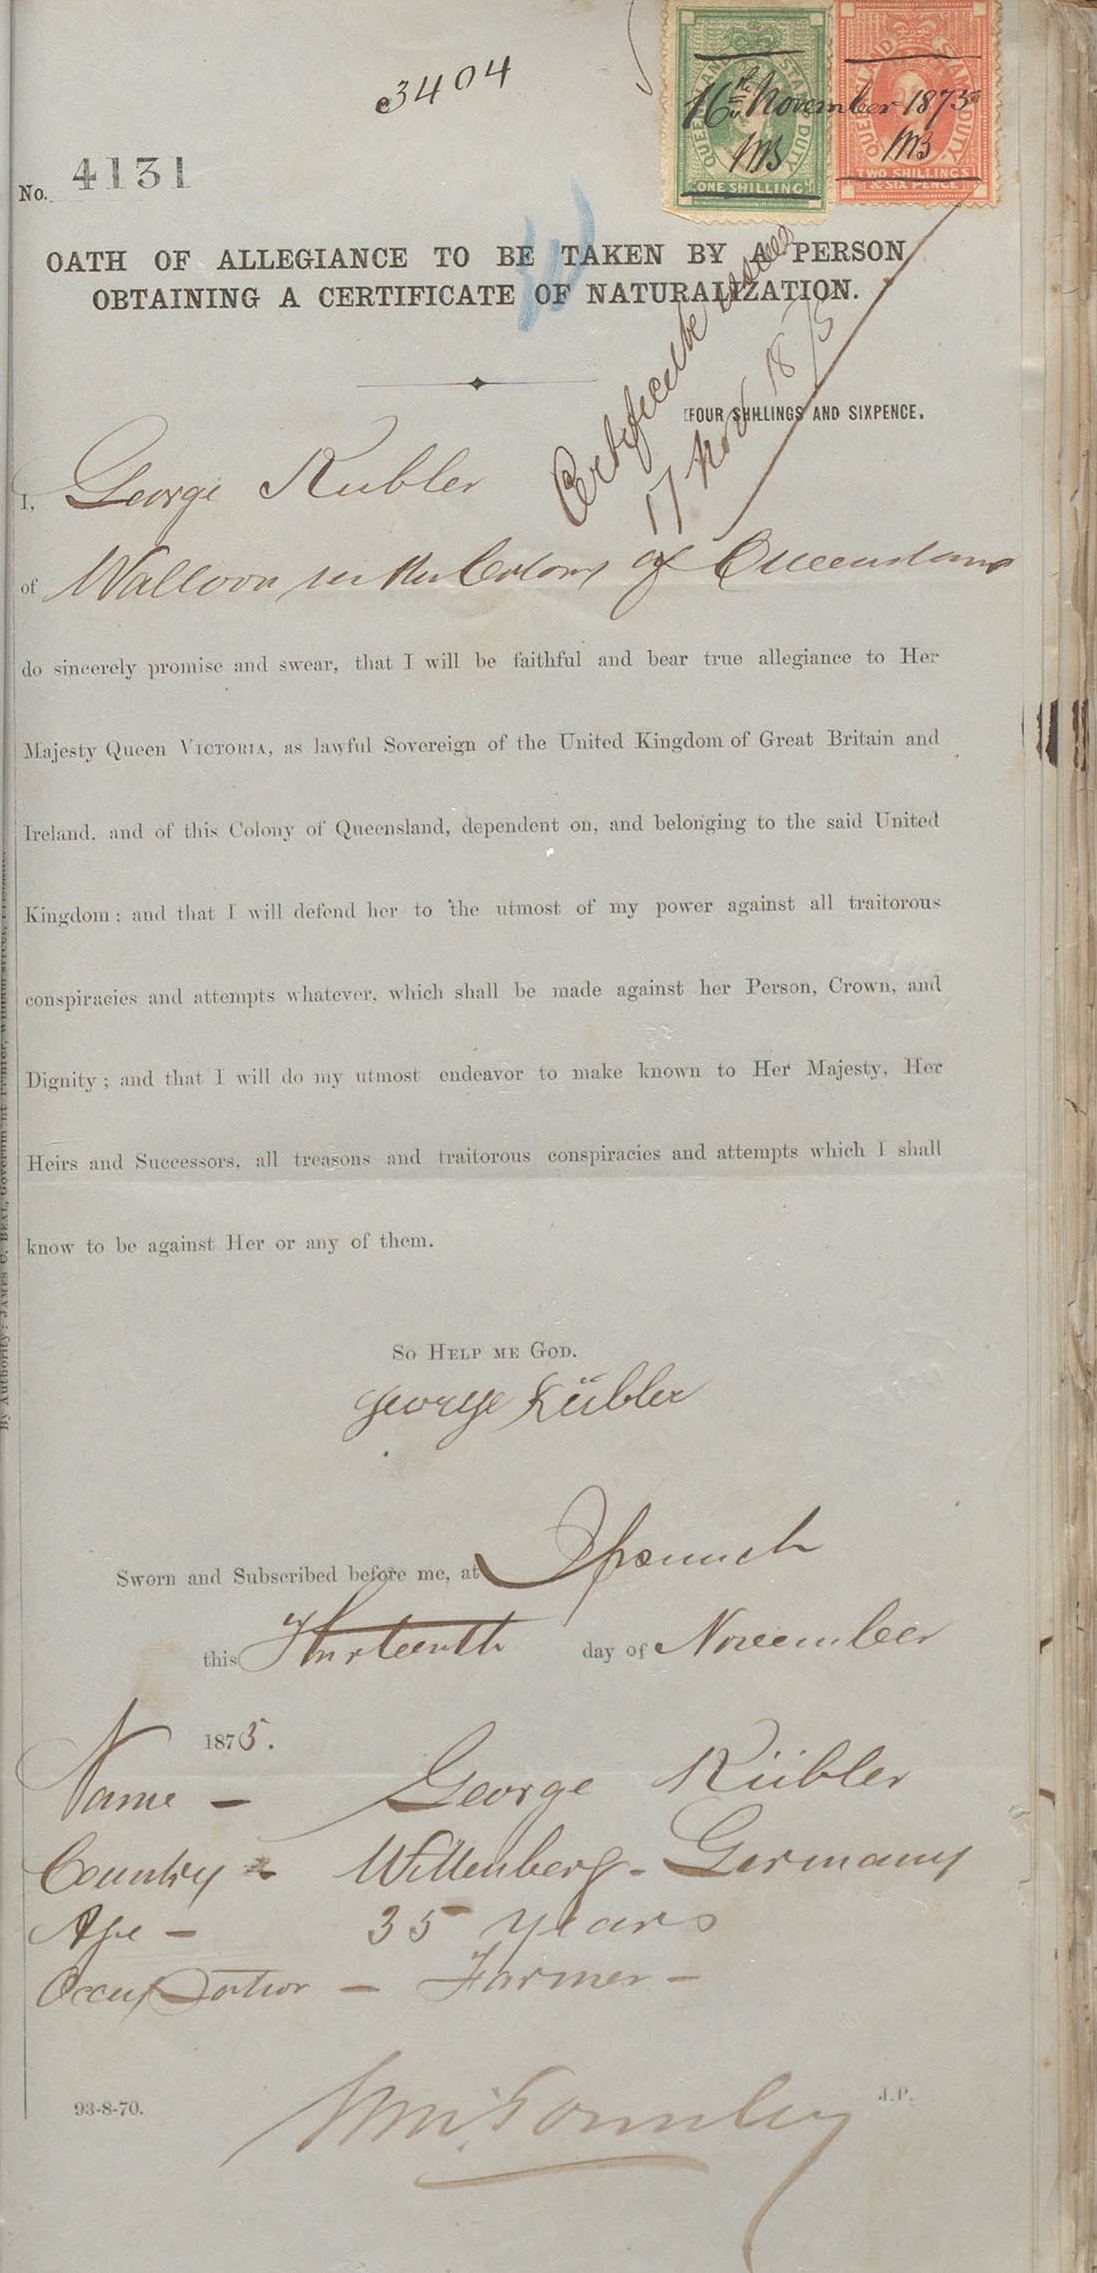 3404
QUEENSLAND STAMP DUTY
ONE SHILLING
QUEENSLAND STAMP DUTY.
TWO SHILLINGS
& SIX PENCE
16th November 1875
No. 4131
OATH OF ALLEGIANCE TO BE TAKEN BY A PERSON
OBTAINING A CERTIFICATE OF NATURALIZATION.
Certificate issued
17 Nov 1875
FOUR SHILLINGS AND SIXPENCE.
I, George Kubler
of Walloon in the Colony of Queensland
do sincerely promise and swear, that I will be faithful and bear true allegiance to Her
Majesty Queen VICTORIA, as lawful Sovereign of the United Kingdom of Great Britain and
Ireland, and of this Colony of Queensland, dependent on, and belonging to the said United
Kingdom; and that I will defend her to the utmost of my power against all traitorous
conspiracies and attempts whatever, which shall be made against her Person, Crown, and
Dignity; and that I will do my utmost endeavor to make known to Her Majesty, Her
Heirs and Successors, all treasons and traitorous conspiracies and attempts which I shall
know to be against Her or any of them.
SO HELP ME GOD.
George Kübler
Sworn and Subscribed before me, at Ipswich
this Thirteenth day of November
1875.
Name - George Kübler
Country - Wittenberg - Germany
Age - 35 years
Occupation - Farmer -
J.P.
93-8-70.
By Authority: JAMES C. BEAL, Government Printer, William street,